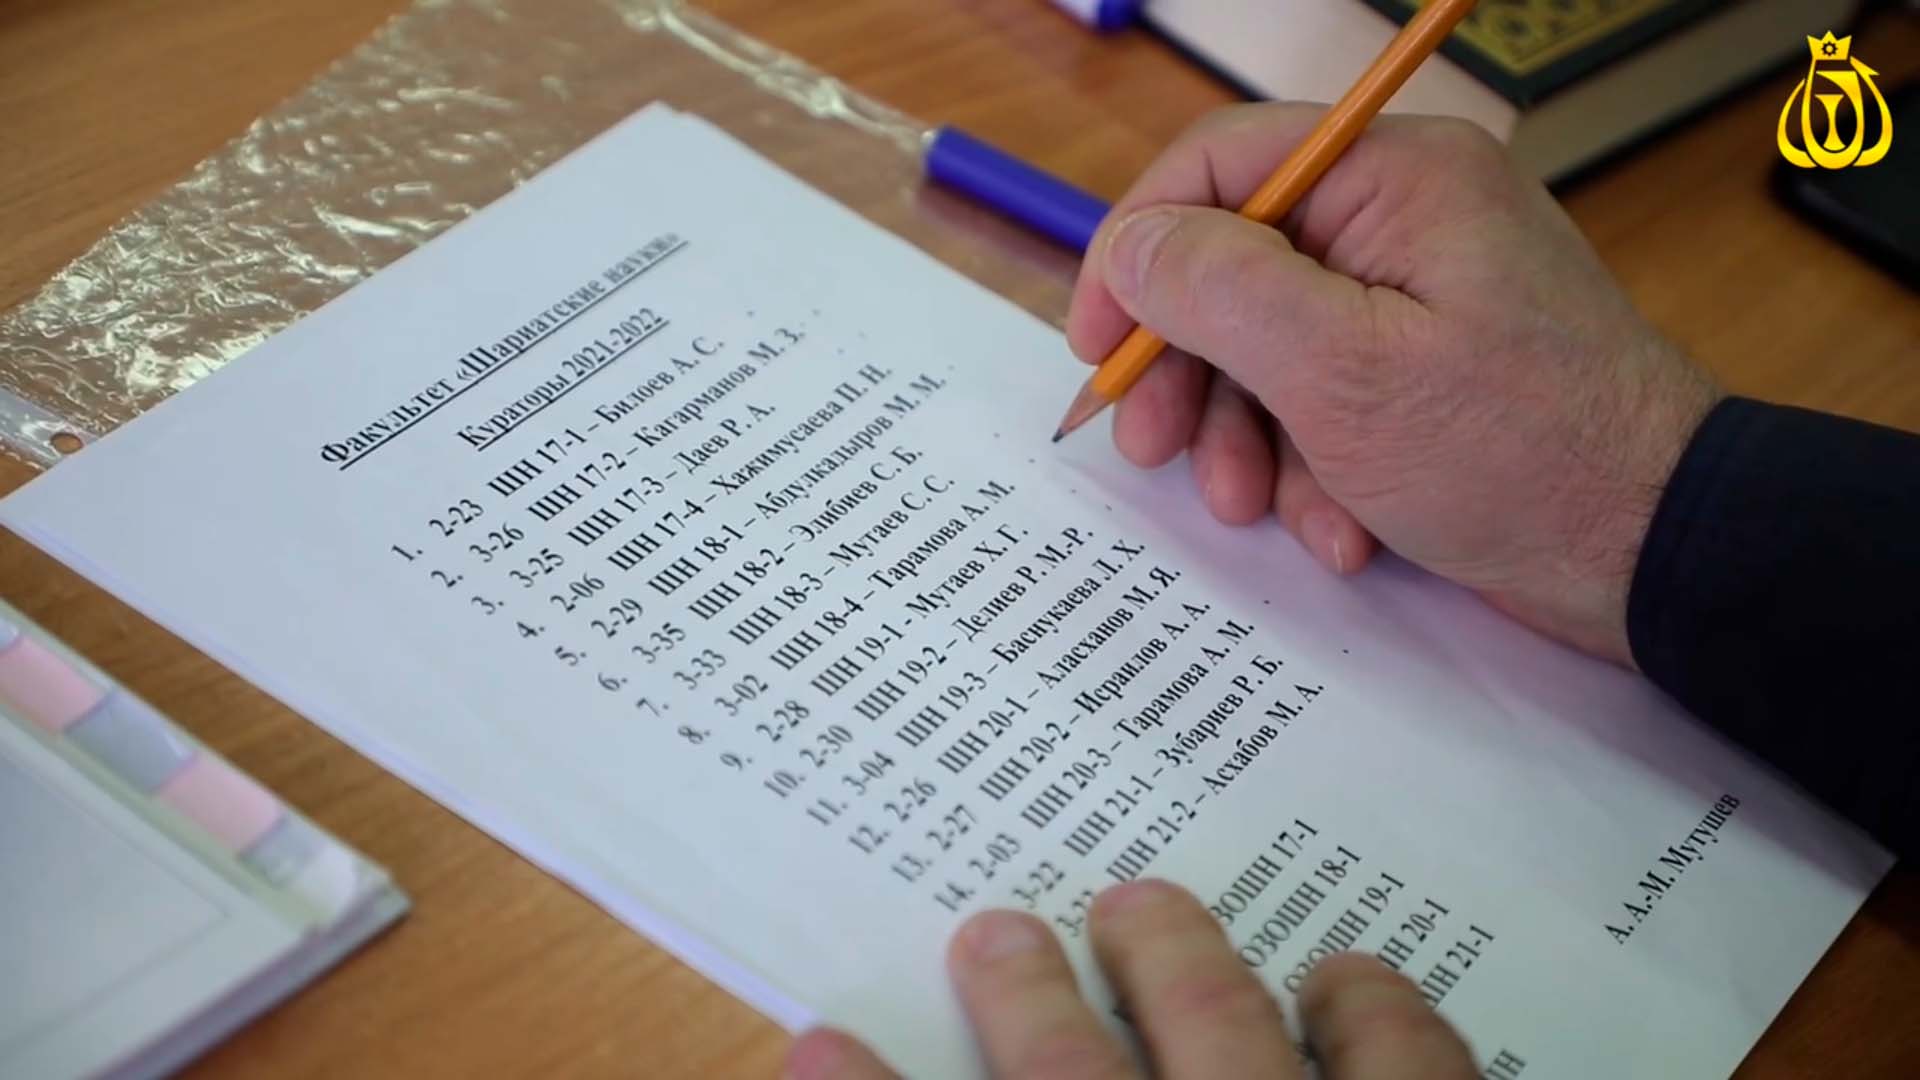 Факультет «Шариатские науки»
Кураторы 2021-2022
1. 2-23 ШН 17-1 – Билоев А. С.
2. 3-26 ШН 17-2 – Кагарманов М. З.
3. 3-25 ШН 17-3 – Даев Р. А.
4. 2-06 ШН 17-4 – Хажимусаева П. Н.
5. 2-29 ШН 18-1 – Абдулкадыров М. М.
6. 3-35 ШН 18-2 – Элибиев С. Б.
7. 3-33 ШН 18-3 – Мутаев С. С.
8. 3-02 ШН 18-4 – Тарамова А. М.
9. 2-28 ШН 19-1 - Мутаев Х. Г.
10. 2-30 ШН 19-2 – Делиев Р. М.-Р.
11. 3-04 ШН 19-3 – Баснукаева Л. Х.
12. 2-26 ШН 20-1 – Аласханов М. Я.
13. 2-27 ШН 20-2 – Исраилов А. А.
14. 2-03 ШН 20-3 – Тарамова А. М.
3-22 ШН 21-1 – Зубариев Р. Б.
ШН 21-2 – Асхабов М. А.
ОЗОШН 17-1
ОЗОШН 18-1
ОЗОШН 19-1
ШН 20-1
ШН 21-1
А. А.-М. Мутушев